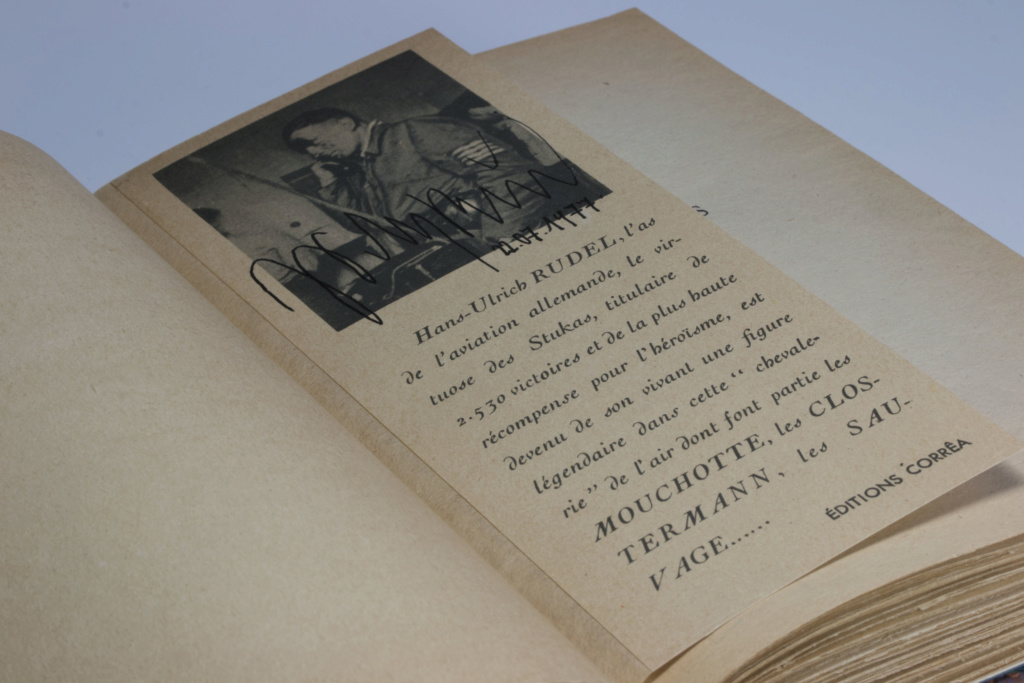 12.07.1977
Hans-Ulrich RUDEL, l'as
de l'aviation allemande, le vir-
tuose des Stukas, titulaire de
2.530 victoires et de la plus haute
récompense pour l'héroïsme, est
devenu de son vivant une figure
légendaire dans cette “ chevale-
rie” de l'air dont font partie les
MOUCHOTTE, les CLOS-
TERMANN, les SAU-
VAGE......
ÉDITIONS CORRÊA